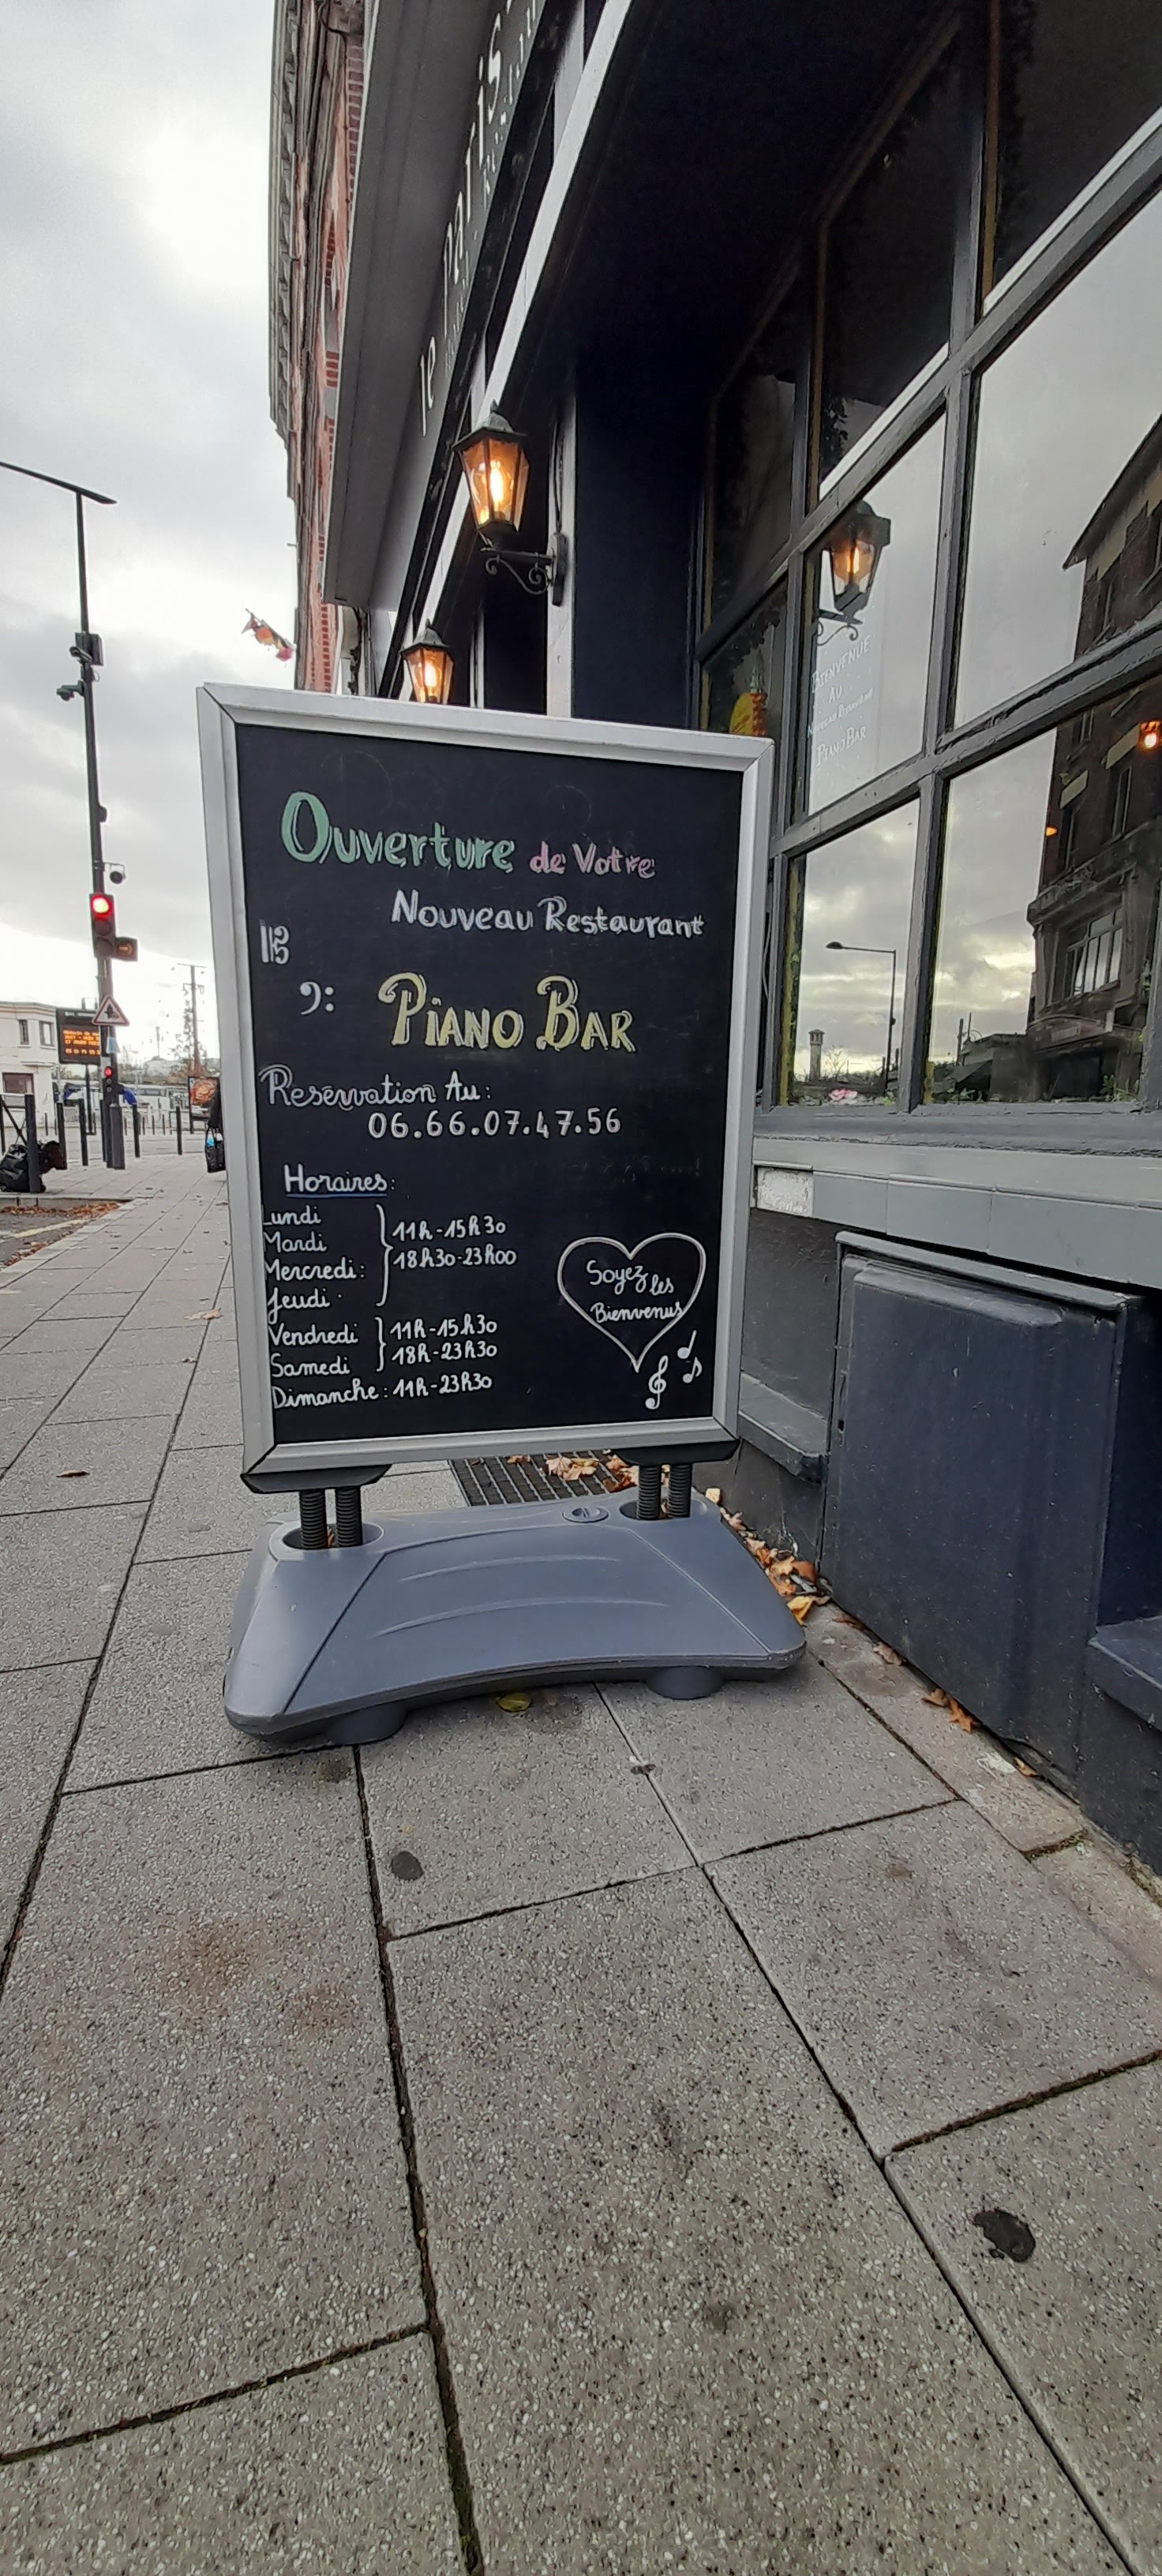 le Parisi
Ouverture de Votre
Nouveau Restaurant
Piano Bar
Reservation Au:
06.66.07.47.56
Horaires:
Lundi
Mardi
Mercredi:
Jeudi
11h-15h30
18h30-23h00
Vendredi
Samedi
11h-15h30
18h-23h30
Dimanche: 11h-23h30
Soyez les
Bienvenus
BIENVENUE
AU
Nouveau Restaurant
PIANO BAR